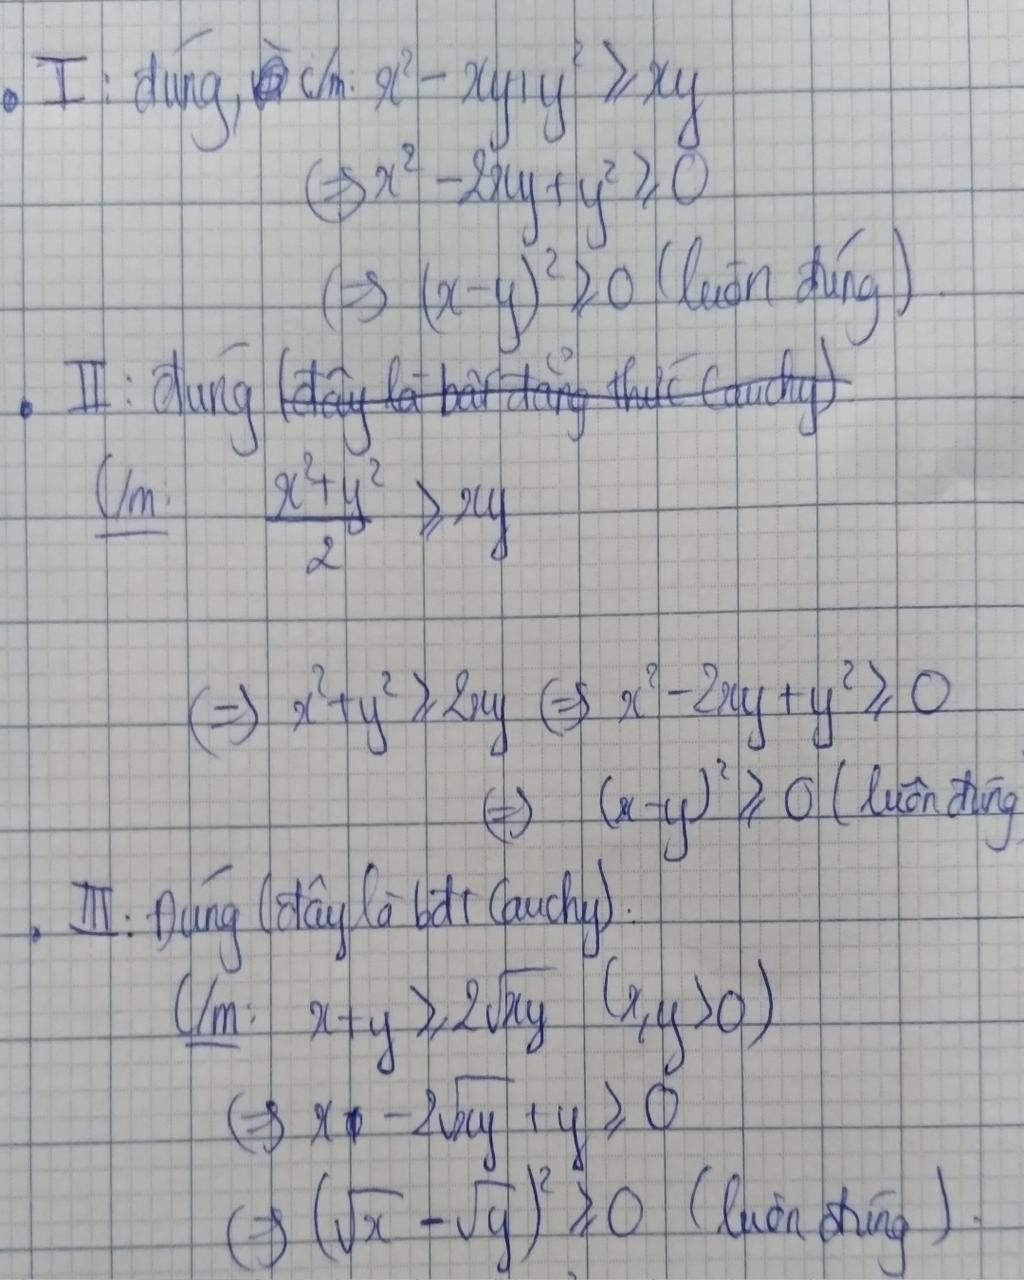 • I: đúng, c/m: x² - xy + y² ≥ xy
(⇒) x² - 2xy + y² ≥ 0
(⇒) (x-y)² ≥ 0 (luôn đúng).
• II: đúng (đây là bất đẳng thức Cauchy)
C/m: (x²+y²)/2 ≥ xy
(⇒) x²+y² ≥ 2xy (⇒) x² - 2xy + y² ≥ 0
(⇒) (x-y)² ≥ 0 (luôn đúng
• III: Đúng (đây là bđt Cauchy).
C/m: x+y ≥ 2√xy (x,y>0)
(⇒) x - 2√xy + y ≥ 0
(⇒) (√x - √y)² ≥ 0 (luôn đúng).